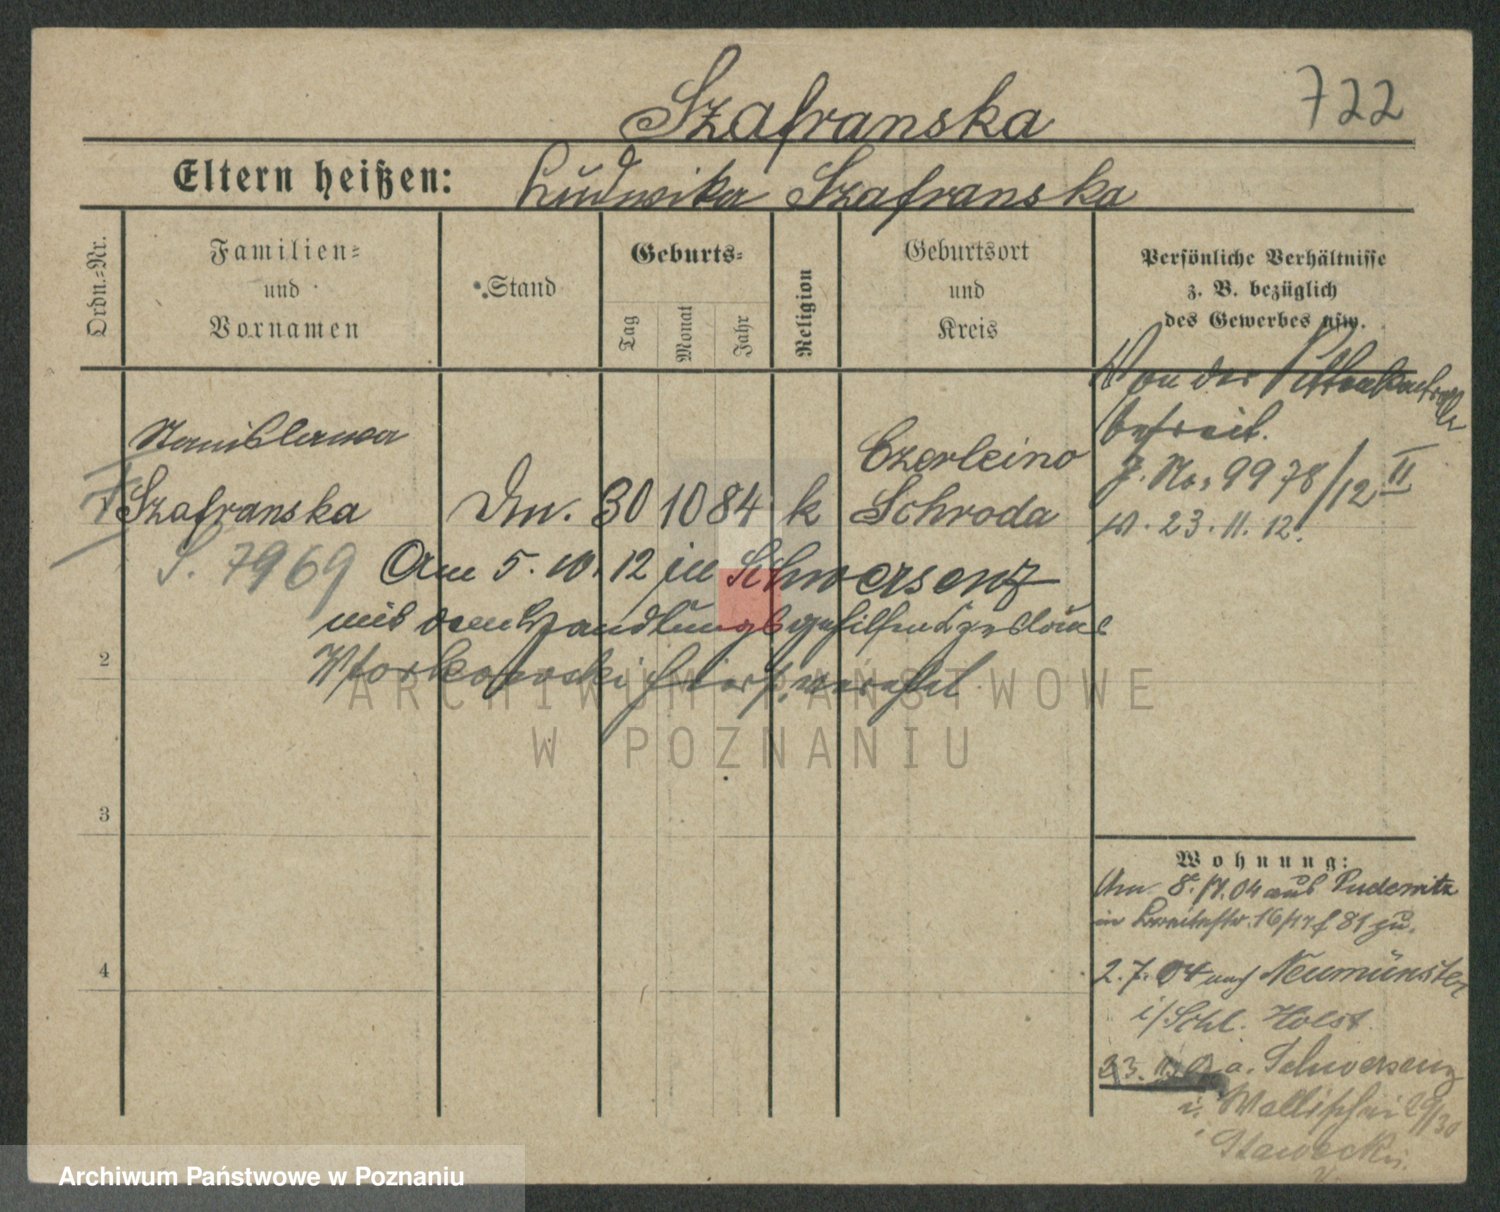 Szafranska
722
Eltern heißen: Ludwika Szafranska
Ordn.=Nr.
Familien=
und
Vornamen
Stand
Geburts=
Tag
Monat
Jahr
Religion
Geburtsort
und
Kreis
Persönliche Verhältnisse
z. B. bezüglich
des Gewerbes usw.
Von der
befreit.
J. No. 9978/12 II
23.11.12.
Stanislawa
Szafranska
Dm. 30 10 84 k
Czerleino
Schroda
S. 7969
Am 5. 10. 12 in Schwersenz
mit dem Handlungsgehilfen
verehel
2
3
4
Wohnung:
Am 8. 04 aus Pudewitz
in Breitestr. 16/17 f 81 zu.
2.7.04 nach Neumünster
i/Schl. Holst.
23. a. Schwersenz
i. Wallischei 29/30
Stawecki
ARCHIWUM PAŃSTWOWE
W POZNANIU
Archiwum Państwowe w Poznaniu